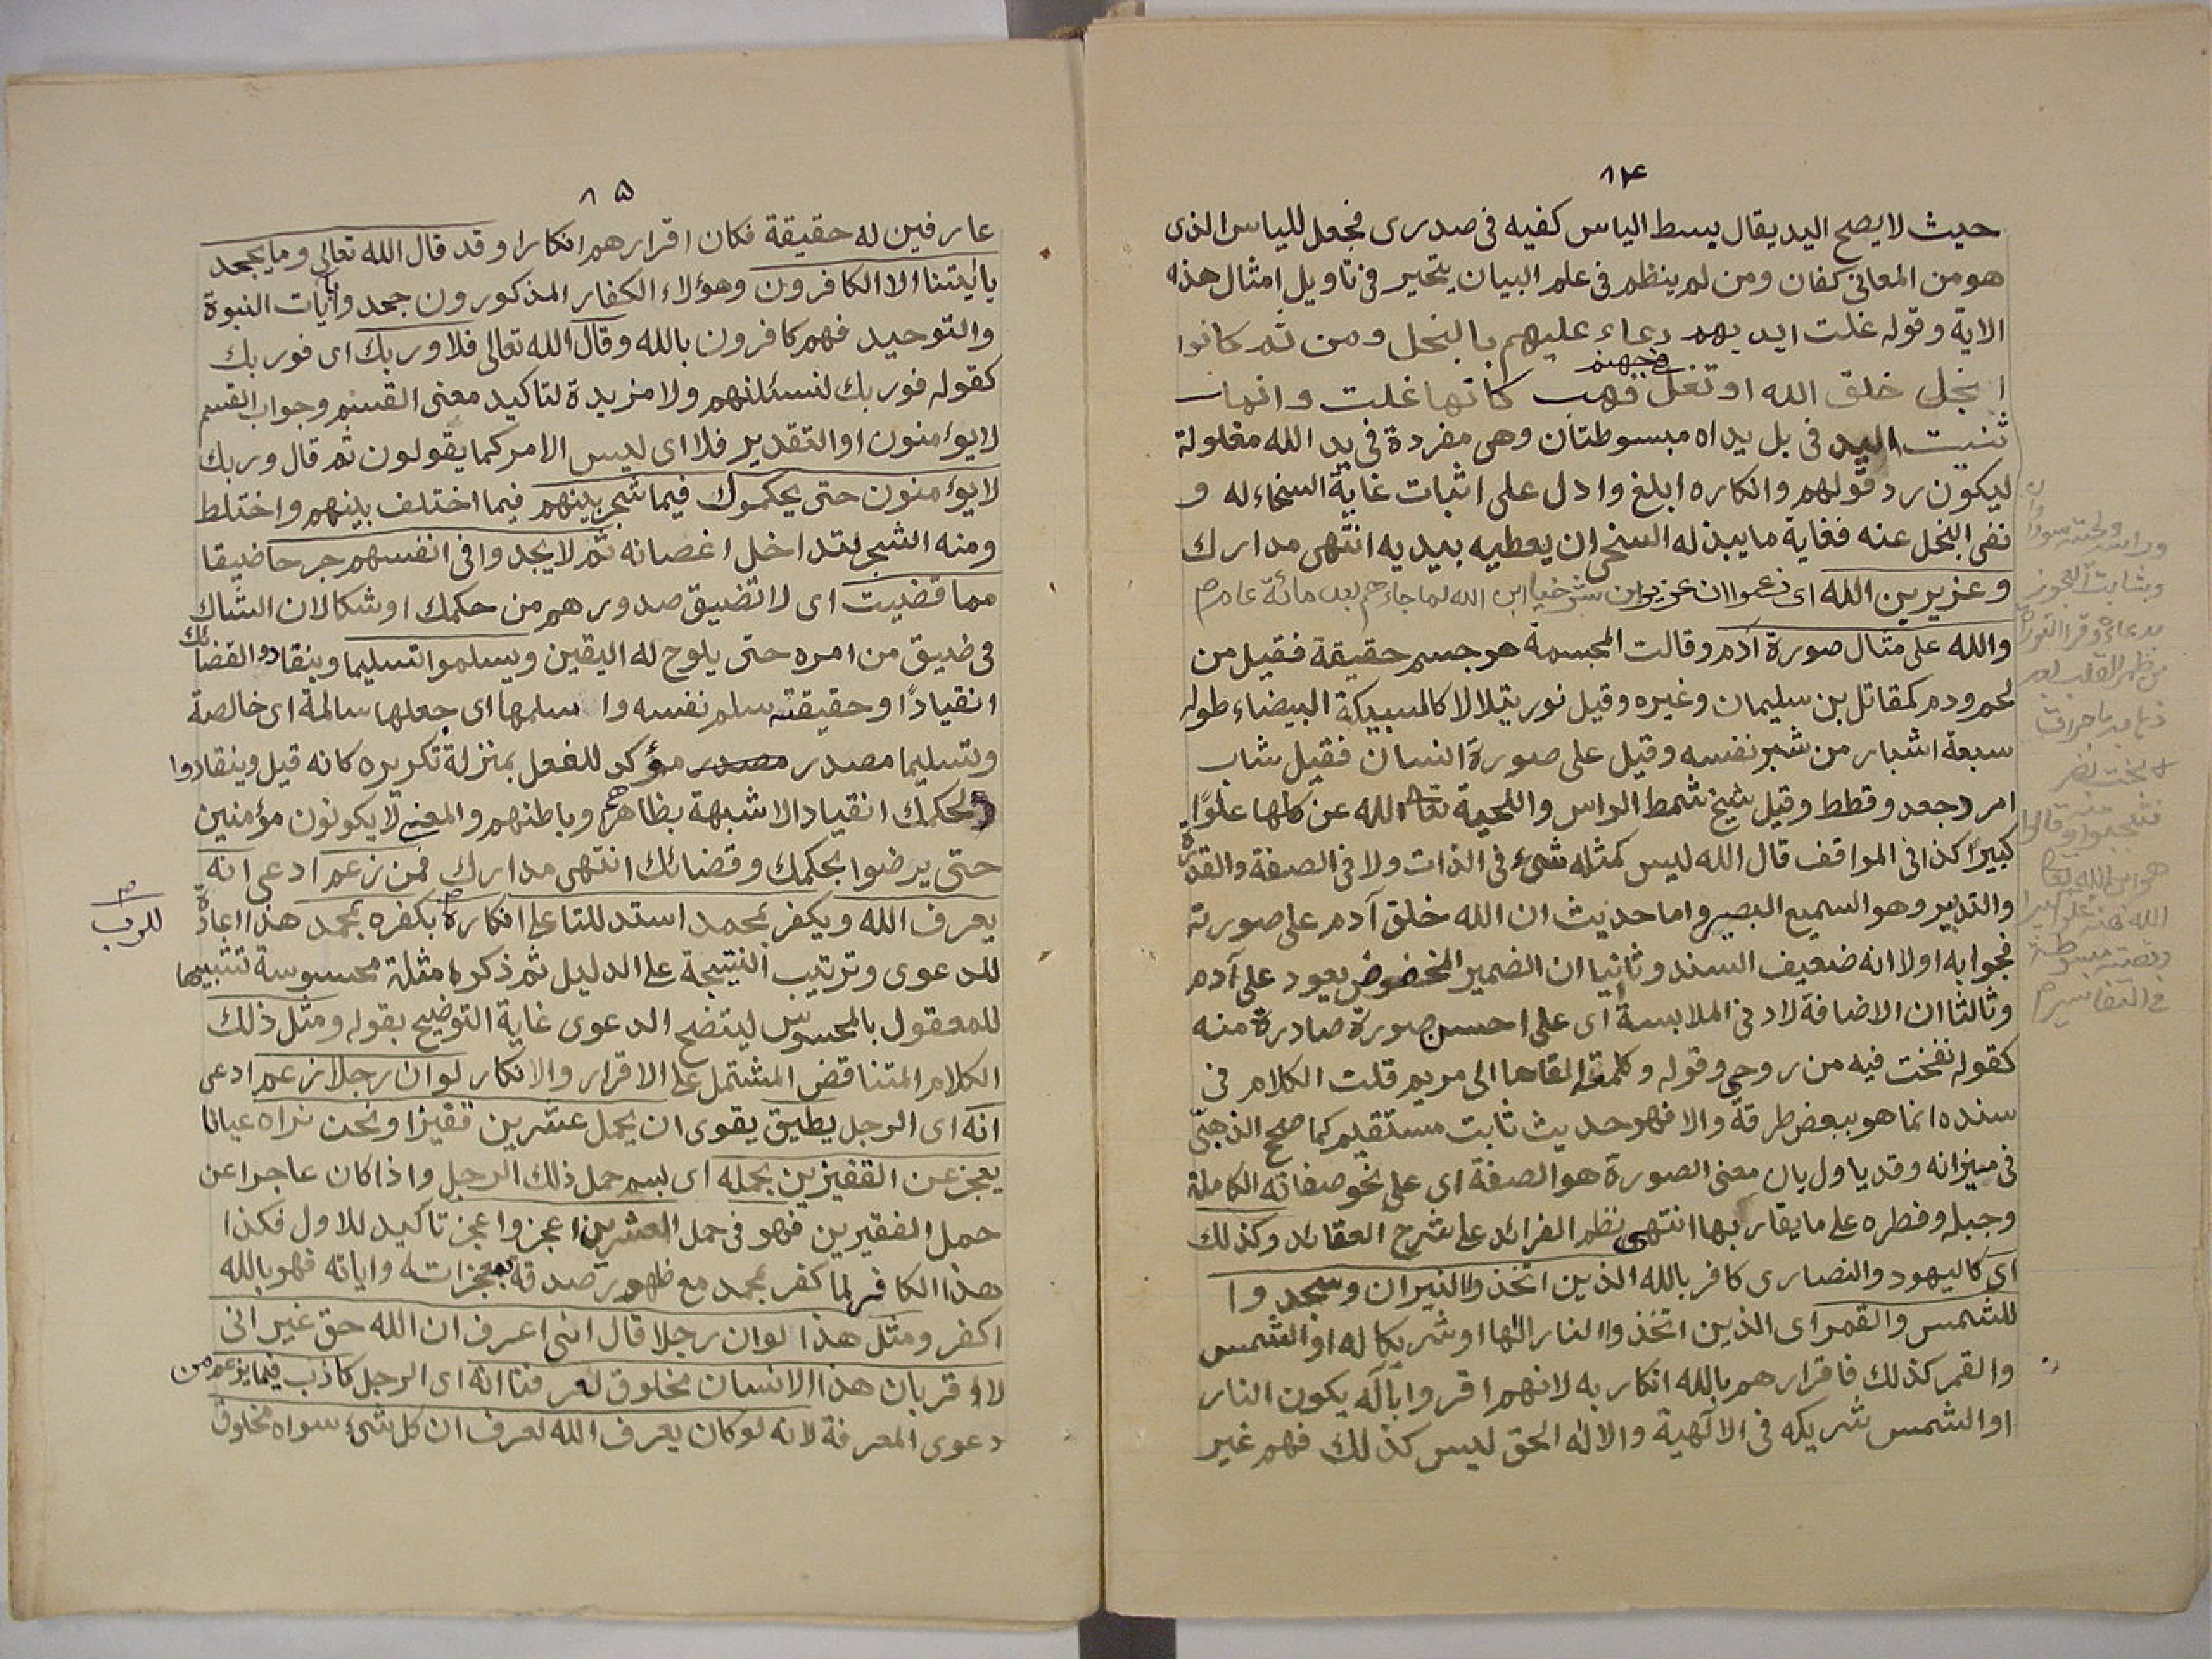 ٨٤
حيث لا يصح اليد يقال يسط الياس كفيه فى صدرى فجعل للياس الذى
هو من المعانى كفان ومن لم ينظم فى علم البيان يتحير فى تاويل امثال هذه
الاية وقوله غلت ايديهم دعاء عليهم بالبخل ومن ثم كانوا
ابخل خلق الله او تغل فى جهنم كانها غلت وانها
ثنيت اليد فى بل يداه مبسوطتان وهى مفردة فى يد الله مغلولة
ليكون رد قولهم وانكاره ابلغ وادل على اثبات غاية السخاء له و
نفى البخل عنه فغاية ما يبذله السخى ان يعطيه بيديه انتهى مدارك
وعزير بن الله اى زعموا ان عزير بن شرخيا ابن الله لما جاءهم بعد مائة عام
والله على مثال صورة آدم وقالت المجسمة هو جسم حقيقة فقيل من
لحم ودم كمقاتل بن سليمان وغيره وقيل نور يتلالا كالسبيكة البيضاء طوله
سبعة اشبار من شبر نفسه وقيل على صورة انسان فقيل شاب
امرد جعد وقطط وقيل شيخ شمط الراس واللحية تعالى الله عن كلها علوًا
كبيرًا كذا فى المواقف قال الله ليس كمثله شىء فى الذات ولا فى الصفة والقدرة
والتدبير وهو السميع البصير واما حديث ان الله خلق آدم على صورته
فجوابه اولا انه ضعيف السند وثانيا ان الضمير المخفوض يعود على آدم
وثالثا ان الاضافة لادنى الملابسة اى على احسن صورة صادرة منه
كقوله نفخت فيه من روحى وقوله وكلمته القاها الى مريم قلت الكلام فى
سنده انما هو ببعض طرقة والا فهو حديث ثابت مستقيم كما صحح الذهبى
فى ميزانه وقد ياول بان معنى الصورة هو الصفة اى على نحو صفاته الكاملة
وجبله وفطره على ما يقاربها انتهى نظم الفرائد على شرح العقائد وكذلك
اى كاليهود والنصارى كافر بالله الذين اتخذوا النيران وسجدوا
للشمس والقمر اى الذين اتخذوا النار الها او شريكا له او الشمس
والقمر كذلك فاقرارهم بالله انكار به لانهم اقروا بآله يكون النار
او الشمس شريكه فى الآلهية والاله الحق ليس كذلك فهم غير
وراسه ولحيته سوداوان
وشابت العجوز
بدعائه وقرا التورية
من ظهر القلب بعد
بخت نصر
فتعجبوا منه وقالوا
هو ابن الله تعالى
الله عنه علوا كبيرا
وقصته مبسوطة
فى التفاسير
٨٥
عارفين له حقيقة فكان اقرارهم انكارا وقد قال الله تعالى وما يجحد
بايتنا الا الكافرون وهؤلاء الكفار المذكورون جحدوا بآيات النبوة
والتوحيد فهم كافرون بالله وقال الله تعالى فلا وربك اى فوربك
كقوله فوربك لنسئلنهم ولا مزيدة لتاكيد معنى القسم وجواب القسم
لا يؤمنون او التقدير فلا اى ليس الامر كما يقولون ثم قال وربك
لا يؤمنون حتى يحكموك فيما شجر بينهم فيما اختلف بينهم واختلط
ومنه الشجر لتداخل اغصانه ثم لا يجدوا فى انفسهم حرجا ضيقا
مما قضيت اى لا تضيق صدورهم من حكمك او شكا لان الشاك
فى ضيق من امره حتى يلوح له اليقين ويسلموا تسليما وينقادوا لقضائك
انقيادًا وحقيقته سلم نفسه وا سلمها اى جعلها سالمة اى خالصة
وتسليما مصدر مصدر مؤكد للفعل بمنزلة تكريره كانه قيل وينقادوا
لحكمك انقياد الا شبهة بظاهرهم وباطنهم والمعنى لا يكونون مؤمنين
حتى يرضوا بحكمك وقضائك انتهى مدارك فمن زعم ادعى انه
يعرف الله ويكفر بمحمد استدللنا على انكاره بكفره بمحمد هذا اعادة
للرب
للدعوى وترتيب النتيجة على الدليل ثم ذكر امثلة محسوسة تشبيها
للمعقول بالمحسوس ليتضح الدعوى غاية التوضيح بقوله ومثل ذلك
الكلام المتناقض المشتمل على الاقرار والانكار لو ان رجلا زعم ادعى
انه اى الرجل يطيق يقوى ان يحمل عشرين قفيزا ونحن نراه عيانا
يعجز عن القفيزين بحمله اى بسبب حمل ذلك الرجل واذا كان عاجزا عن
حمل القفيزين فهو فى حمل العشرين اعجز واعجز تاكيد للاول فكذا
هذا الكافر لما كفر بمحمد مع ظهور صدقه بمعجزاته واياته فهو بالله
اكفر ومثل هذا لو ان رجلا قال انى اعرف ان الله حق غير انى
لا اقر بان هذا الانسان مخلوق لعرفنا انه اى الرجل كاذب فيما يزعم من
دعوى المعرفة لانه لو كان يعرف الله لعرف ان كل شىء سواه مخلوق